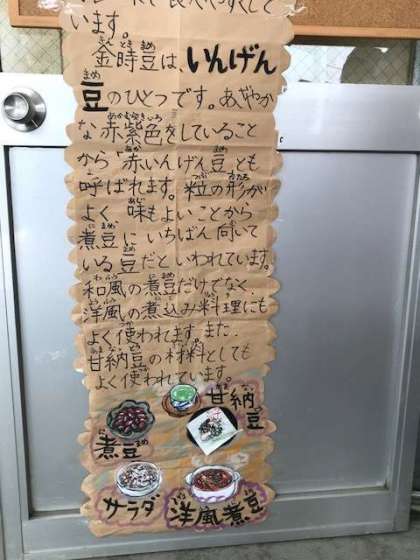 て食べやすくして
います。
金時豆は、いんげん
豆のひとつです。あざやか
な赤紫色をしていること
から「赤いんげん豆」とも
呼ばれます。粒の形が
よく、味もよいことから
煮豆にいちばん向いて
いる豆だといわれています。
和風の煮豆だけでなく、
洋風の煮込み料理にも
よく使われてます。また、
甘納豆の材料としても
よく使われています。
甘納豆
煮豆
サラダ
洋風煮豆